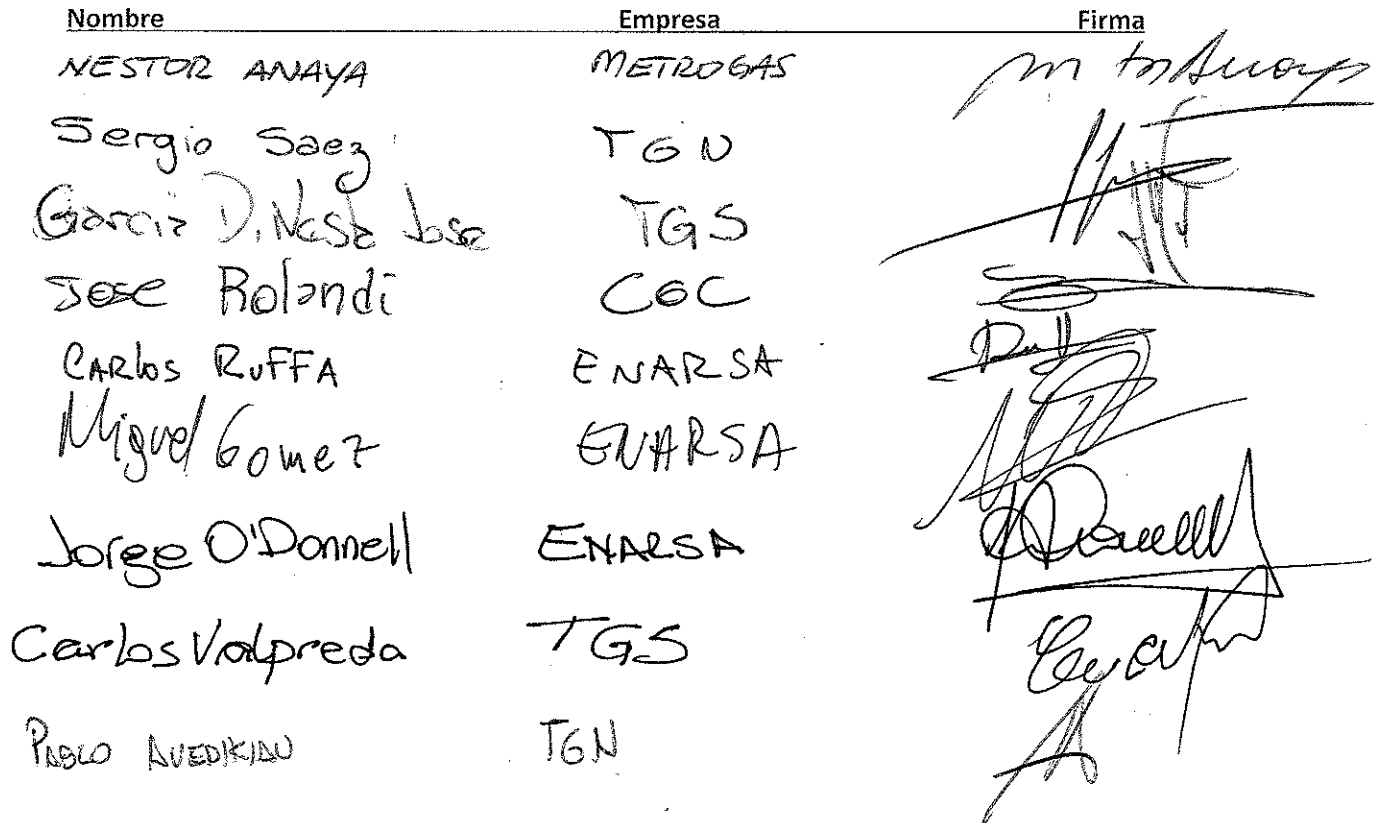 Nombre Empresa Firma
NESTOR ANAYA METROGAS
Sergio Saez TGN
Garcia D. Nesta Jose TGS
Jose Rolandi CGC
CARlos RUFFA ENARSA
Miguel Gomez ENARSA
Jorge O'Donnell ENARSA
Carlos Valpreda TGS
PABLO AVEDIKIAN TGN